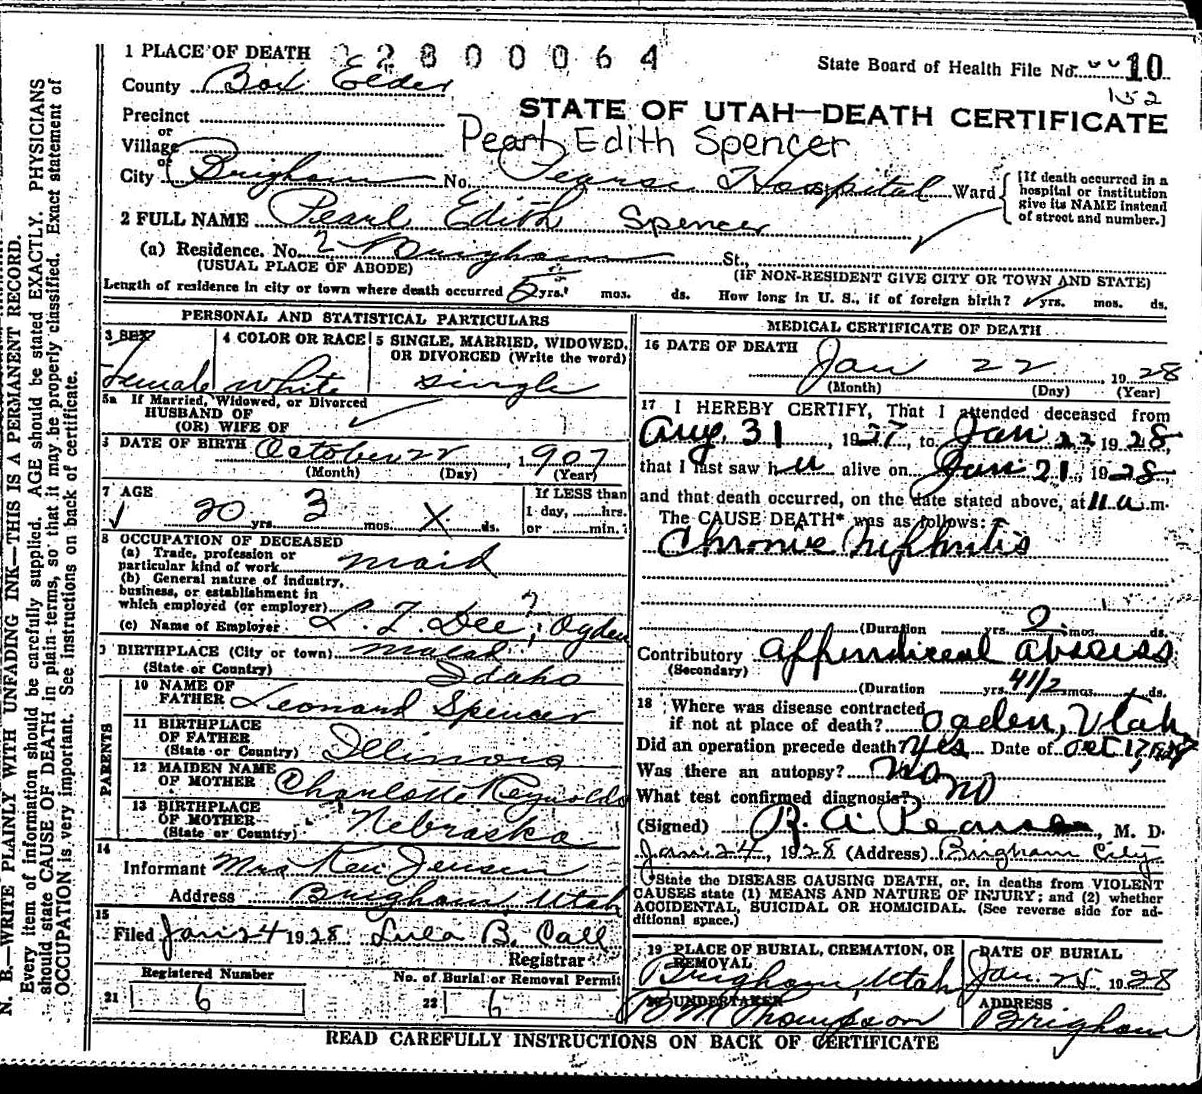 1 PLACE OF DEATH 2 8 0 0 0 6 4
State Board of Health File No. 10
152
County Box Elder
STATE OF UTAH—DEATH CERTIFICATE
Precinct
or
Village
Pearl Edith Spencer
or
City Brigham No. Pearse Hospital Ward
[If death occurred in a
hospital or institution
give its NAME instead
of street and number.]
2 FULL NAME Pearl Edith Spencer
(a) Residence. No. 2 Brigham St.,
(USUAL PLACE OF ABODE) (IF NON-RESIDENT GIVE CITY OR TOWN AND STATE)
Length of residence in city or town where death occurred yrs. mos. ds. How long in U. S., if of foreign birth? yrs. mos. ds.
PERSONAL AND STATISTICAL PARTICULARS
3 SEX
Female
4 COLOR OR RACE
White
5 SINGLE, MARRIED, WIDOWED,
OR DIVORCED (Write the word)
single
5a If Married, Widowed, or Divorced
HUSBAND OF
(OR) WIFE OF
DATE OF BIRTH October 22, 1907
(Month) (Day) (Year)
7 AGE
20 yrs. 3 mos. X ds.
If LESS than
1 day, hrs.
or min.
8 OCCUPATION OF DECEASED
(a) Trade, profession or
particular kind of work maid
(b) General nature of industry,
business, or establishment in
which employed (or employer)
(c) Name of Employer L. T. Dee, ? Ogden
9 BIRTHPLACE (City or town) Malad
(State or Country) Idaho
PARENTS
10 NAME OF
FATHER Leonard Spencer
11 BIRTHPLACE
OF FATHER
(State or Country) Illinois
12 MAIDEN NAME
OF MOTHER Charlotte Reynolds
13 BIRTHPLACE
OF MOTHER
(State or Country) Nebraska
14
Informant Mrs Ken Jensen
Address Brigham Utah
15
Filed Jan 24 1928 Lula B. Call
Registrar
Registered Number
21 6
No. of Burial or Removal Permit
22 6
MEDICAL CERTIFICATE OF DEATH
16 DATE OF DEATH
Jan 22, 1928
(Month) (Day) (Year)
17 I HEREBY CERTIFY, That I attended deceased from
Aug. 31, 1927, to Jan 22 1928,
that I last saw her alive on Jan 21, 1928,
and that death occurred, on the date stated above, at 11 a.m.
The CAUSE DEATH* was as follows:
Chronic Nephritis
(Duration yrs. mos. ds.
Contributory Appendiceal abscess
(Secondary)
(Duration yrs. 4 1/2 mos. ds.
18 Where was disease contracted
if not at place of death? Ogden, Utah
Did an operation precede death? Yes Date of Oct 17, 1927
Was there an autopsy? No
What test confirmed diagnosis? no
(Signed) R. A. Pearse, M. D.
Jan 24, 1928 (Address) Brigham City
*State the DISEASE CAUSING DEATH, or, in deaths from VIOLENT
CAUSES state (1) MEANS AND NATURE OF INJURY; and (2) whether
ACCIDENTAL, SUICIDAL OR HOMICIDAL. (See reverse side for ad-
ditional space.)
19 PLACE OF BURIAL, CREMATION, OR
REMOVAL
Brigham, Utah
DATE OF BURIAL
Jan. 25, 1928
20 UNDERTAKER
Thompson
ADDRESS
Brigham
READ CAREFULLY INSTRUCTIONS ON BACK OF CERTIFICATE
N. B.—WRITE PLAINLY WITH UNFADING INK—THIS IS A PERMANENT RECORD.
Every item of information should be carefully supplied. AGE should be stated EXACTLY. PHYSICIANS
should state CAUSE OF DEATH in plain terms, so that it may be properly classified. Exact statement of
OCCUPATION is very important. See instructions on back of certificate.